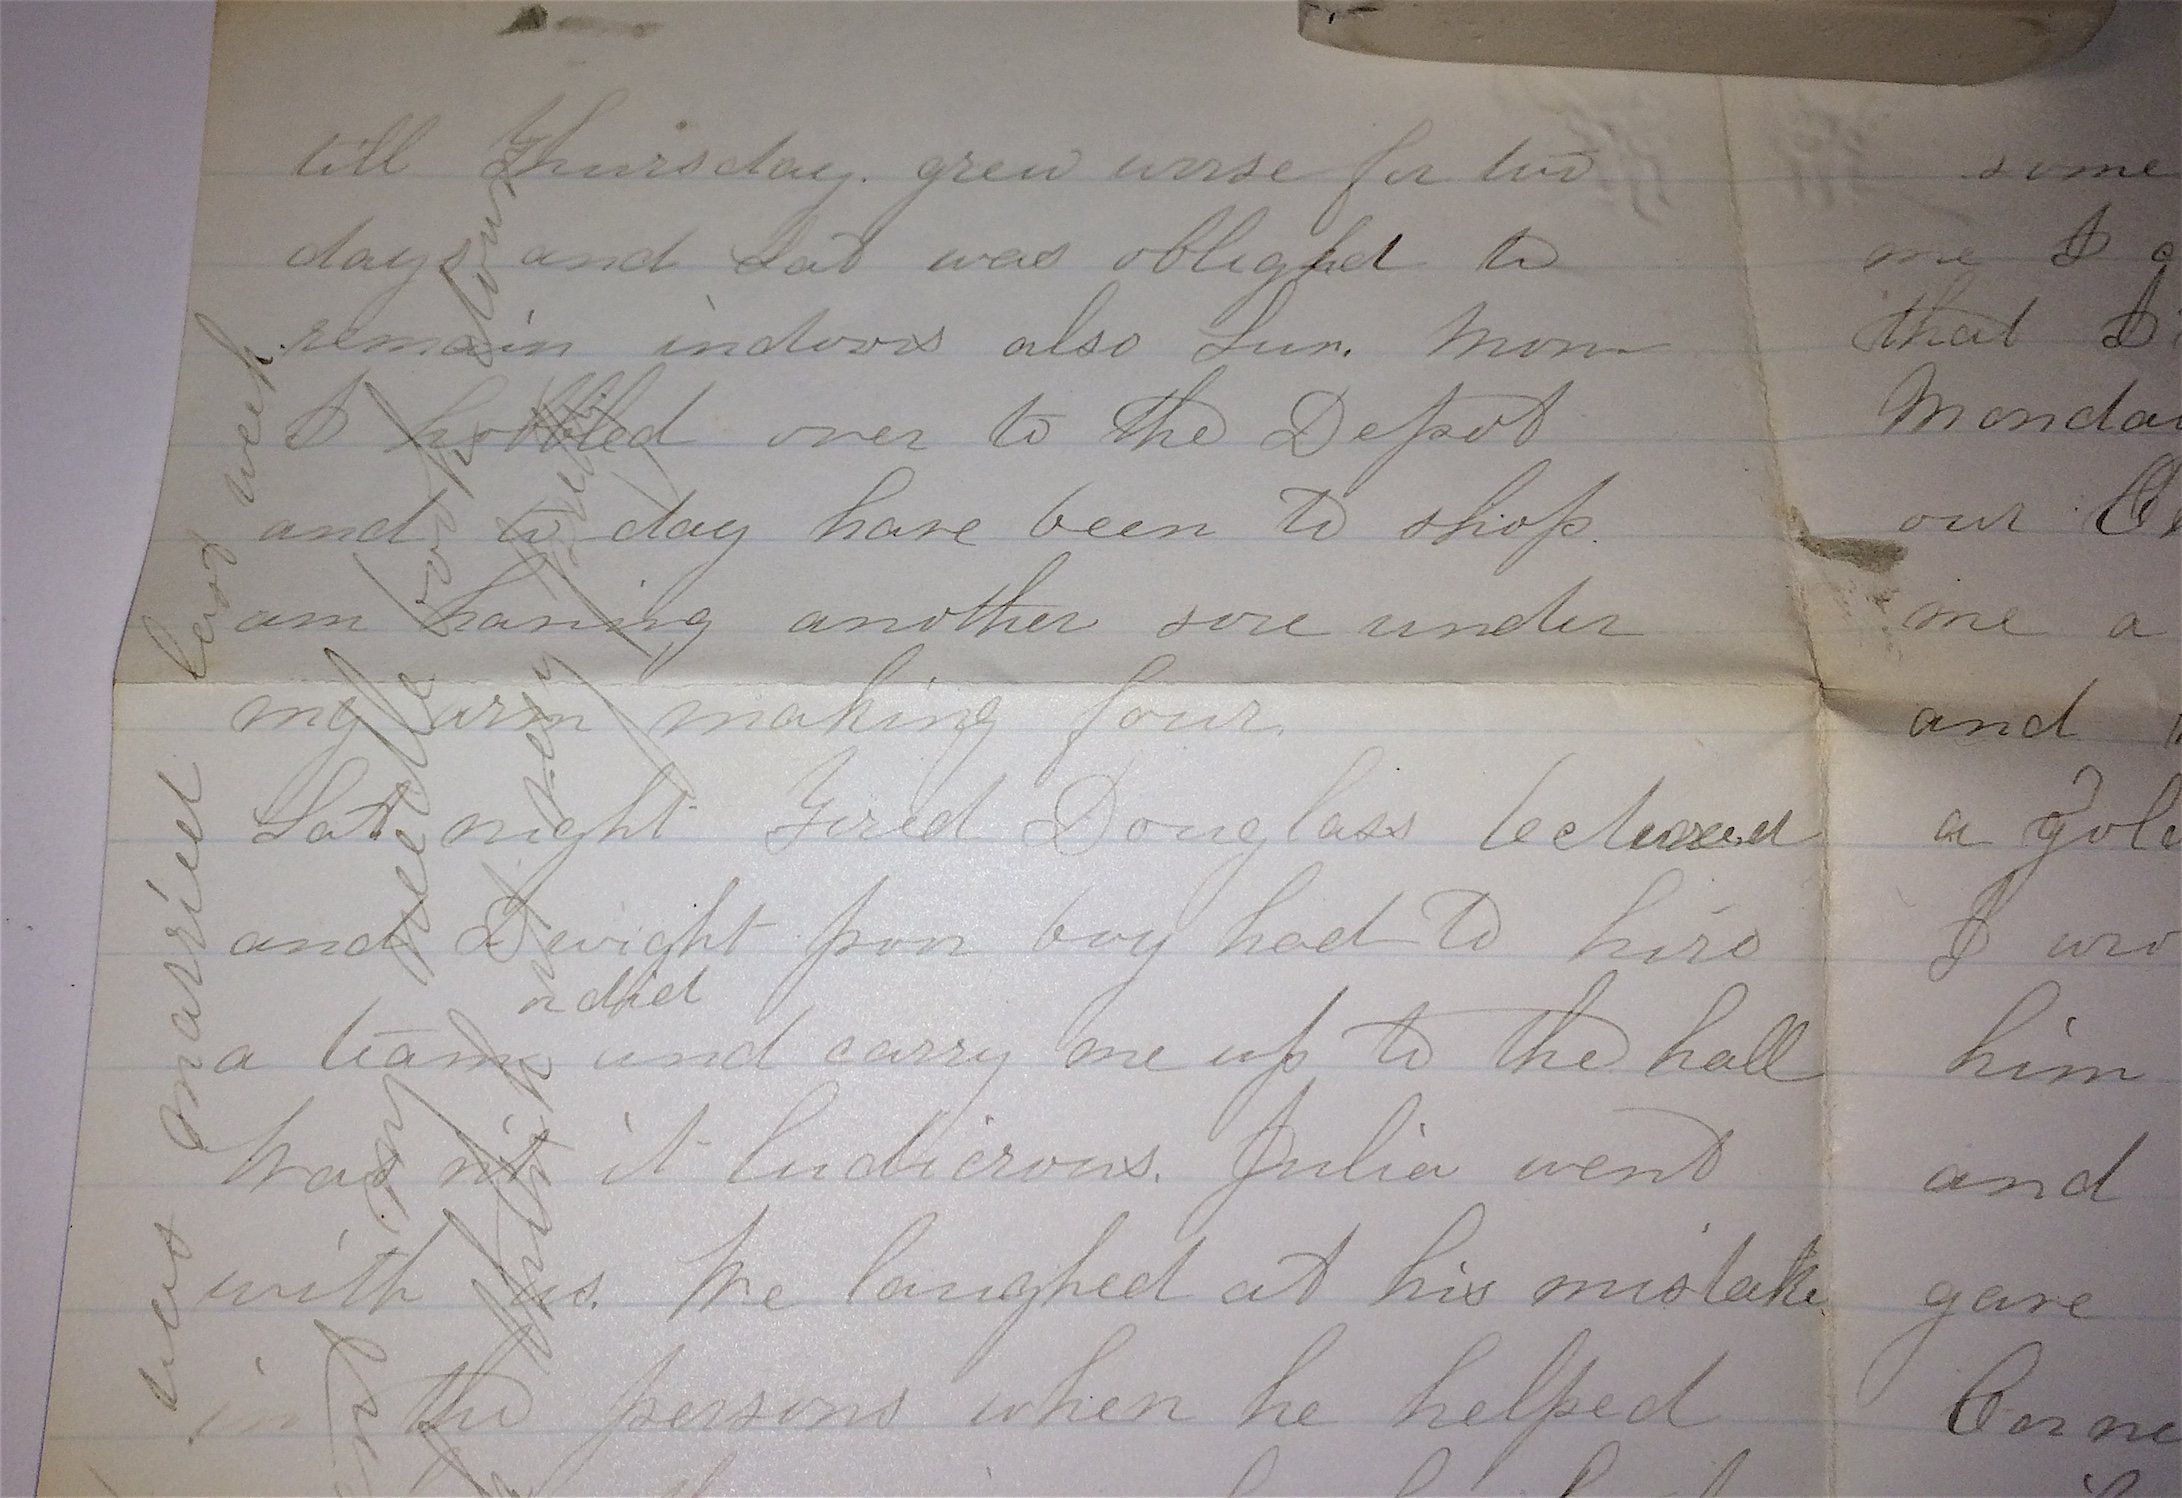 till Thursday. grew worse for two
days and Sat was oblighd to
remain indoors also Sun. Mon
I hobbled over to the Depot
and to day have been to shop.
am having another sore under
my arm making four.
Sat night Fred Douglass lectured
and Dwight poor boy had to hire
or did
a team and carry me up to the hall
Was nt it ludicrous. Julia went
with us. We laughed at his mistake
in the persons when he helped
was married last week
my needle work down
think very
some
me I
that I
Monday
our
me a
and
a gold
I wro
him
and
gave
Corne